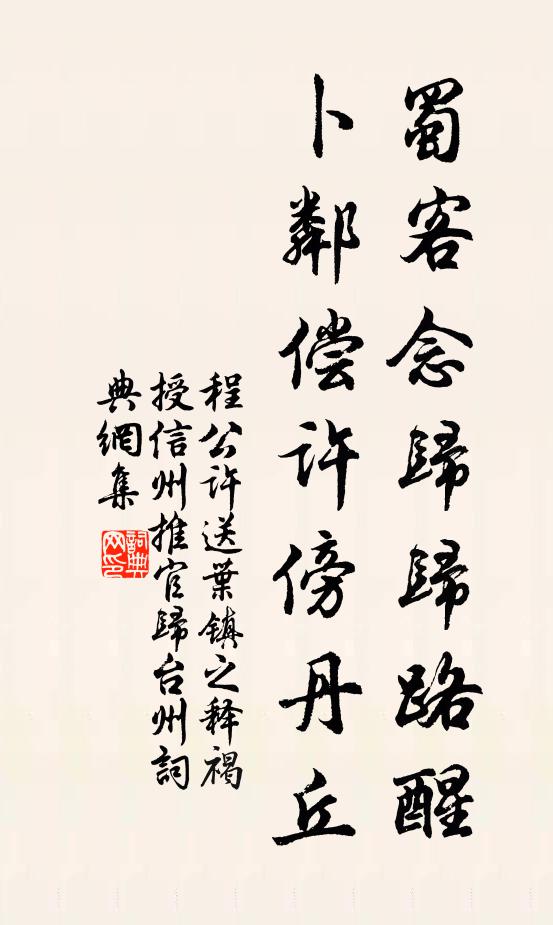 蜀客念歸歸路醒
卜鄰偿許傍丹丘
程公许送葉鎮之释褐
授信州推官歸台州詞
典網集
詞典
网印